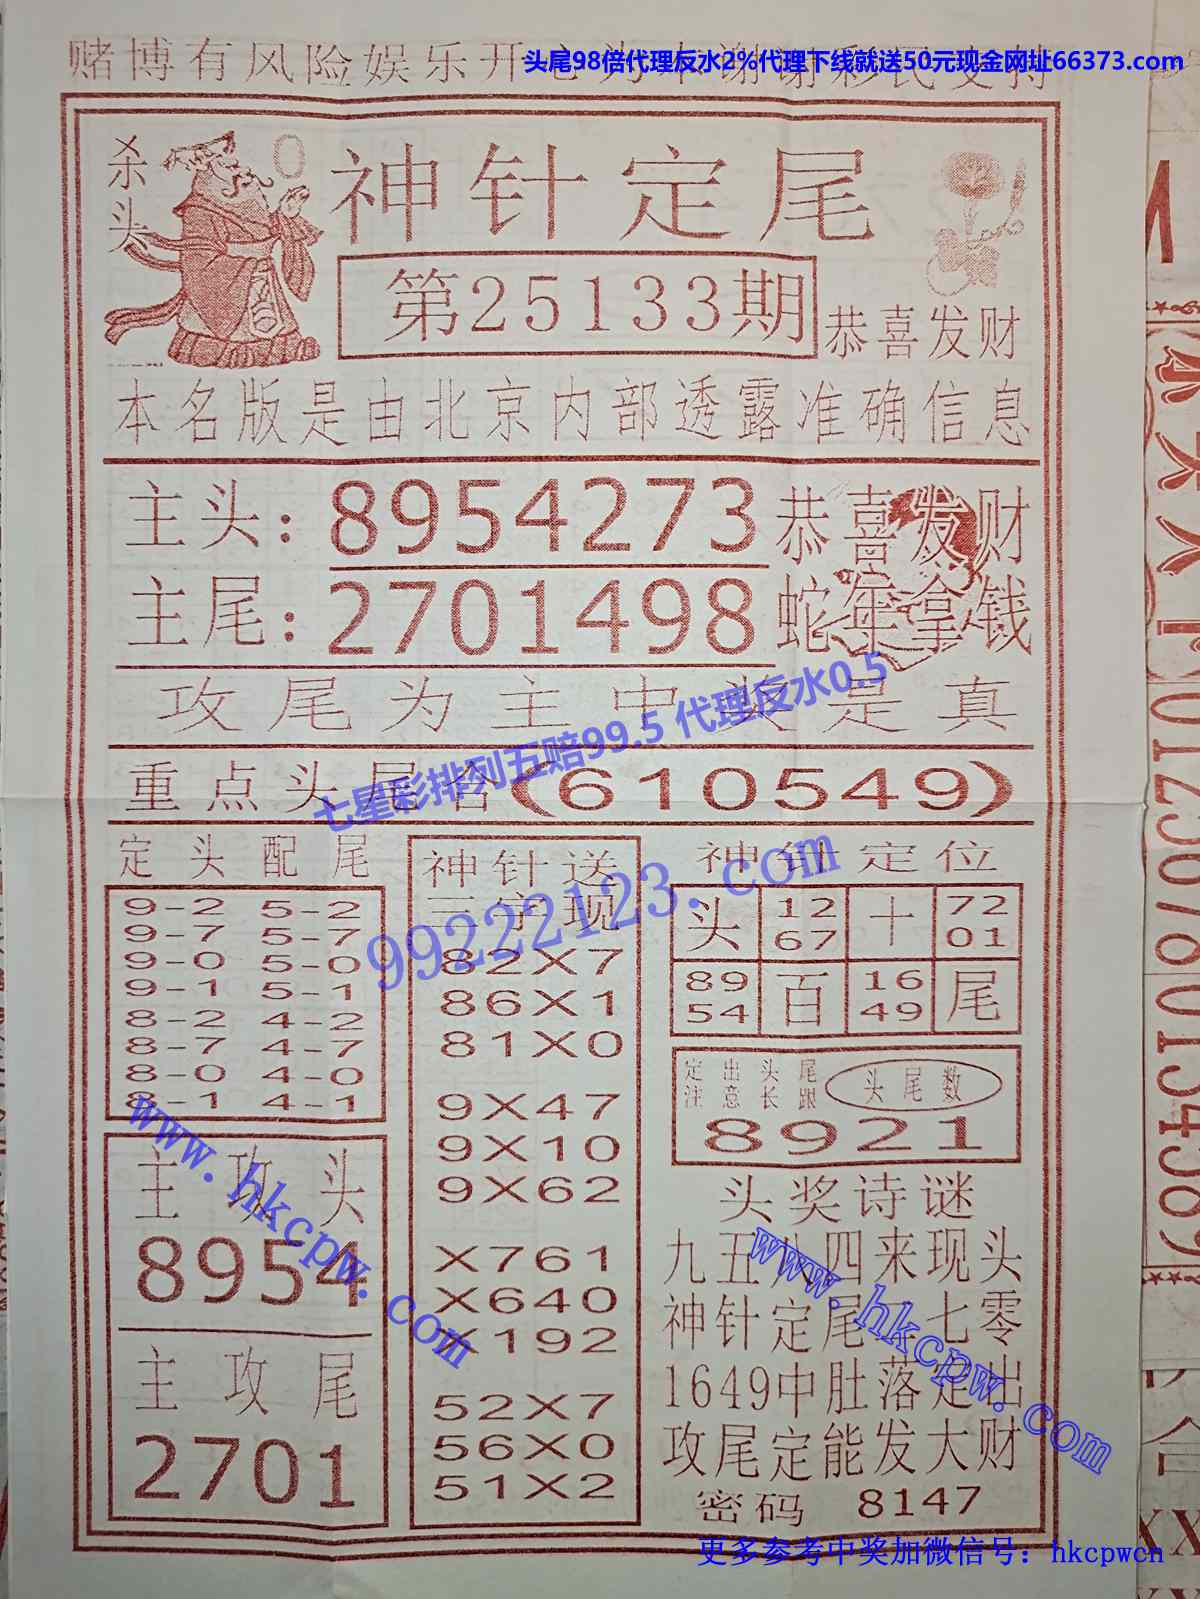 头尾98倍代理反水2%代理下线就送50元现金网址66373.com
赌博有风险娱乐开心为本谢谢彩民支持
杀头
神针定尾
第25133期
恭喜发财
本名版是由北京内部透露准确信息
主头：8954273
恭喜发财
主尾：2701498
蛇年拿钱
攻尾为主中奖是真
重点头尾含（610549）
七星彩排列五赔99.5 代理反水0.5
99222123.com
定头配尾
9-2 5-2
9-7 5-7
9-0 5-0
9-1 5-1
8-2 4-2
8-7 4-7
8-0 4-0
8-1 4-1
主攻头
8954
主攻尾
2701
神针送
三字现
82X7
86X1
81X0
9X47
9X10
9X62
X761
X640
X192
52X7
56X0
51X2
神针定位
头 12 67 十 72 01
89 54 百 16 49 尾
定出头尾
注意长跟
头尾数
8921
头奖诗谜
九五八四来现头
神针定尾二七零
1649中肚落定出
攻尾定能发大财
密码 8147
www.hkcpw.com
www.hkcpw.com
更多参考中奖加微信号：hkcpwcn